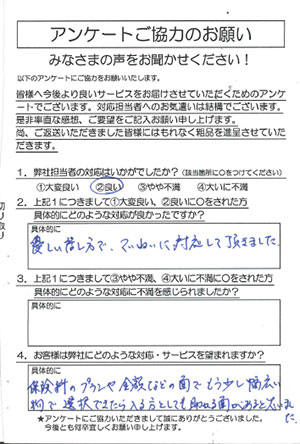 アンケートご協力のお願い
みなさまの声をお聞かせください！
以下のアンケートにご協力をお願いいたします。
皆様へ今後より良いサービスをお届けさせていただくためのアンケ
ートでございます。対応担当者へのお気遣いは結構でございます。
是非率直な感想、ご要望をご記入お願い申し上げます。
尚、ご返送いただきました皆様にはもれなく粗品を進呈させていた
だきます。
1．弊社担当者の対応はいかがでしたか？（該当箇所に○をつけてください）
①大変良い ②良い ③やや不満 ④大いに不満
2．上記1につきまして①大変良い、②良いに○をされた方
具体的にどのような対応が良かったですか？
具体的に
優しい話し方で、ていねいに対応して頂きました。
3．上記1につきまして③やや不満、④大いに不満に○をされた方
具体的にどのような対応に不満を感じられましたか？
具体的に
4．お客様は弊社にどのような対応・サービスを望まれますか？
具体的に
保険料のプランや金額などの面でもう少し幅広い
物で選択できたら入る方としても 面があると思いました。
★アンケートにご協力いただきまして誠にありがとうございました。
今後とも何卒宜しくお願い申し上げます。
切り取り